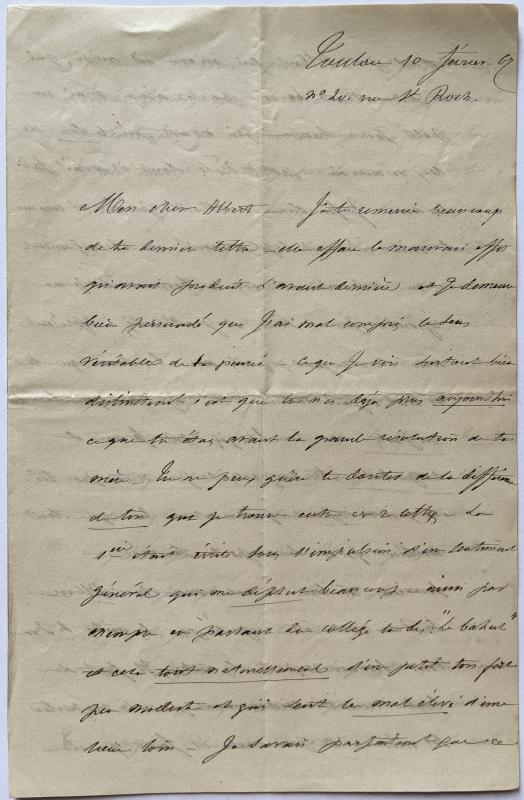 Toulon 10 février
n° 20. rue St Roch.
Mon cher Albert Je te remercie beaucoup
de ta dernière lettre - elle efface le mauvais effet
qu'avait produit l'avant dernière et je demeure
bien persuadé que j'ai mal compris le sens
véritable de ta pensée - ce que je vois surtout bien
distinctement c'est que tu n'es déjà plus aujourd'hui
ce que tu étais avant la grande résolution de ta
mère - Tu ne peux guère te douter de la différence
de ton que je trouve entre ces 2 lettres La
1ère étant écrite sous l'impulsion d'un sentiment
général qui me déplut beaucoup ainsi par
exemple en parlant du collège tu dis: "le bahut"
et cela tout naturellement d'un petit ton fort
peu modeste et qui sent le mal élevé d'une
lieue loin - Je savais parfaitement que ce